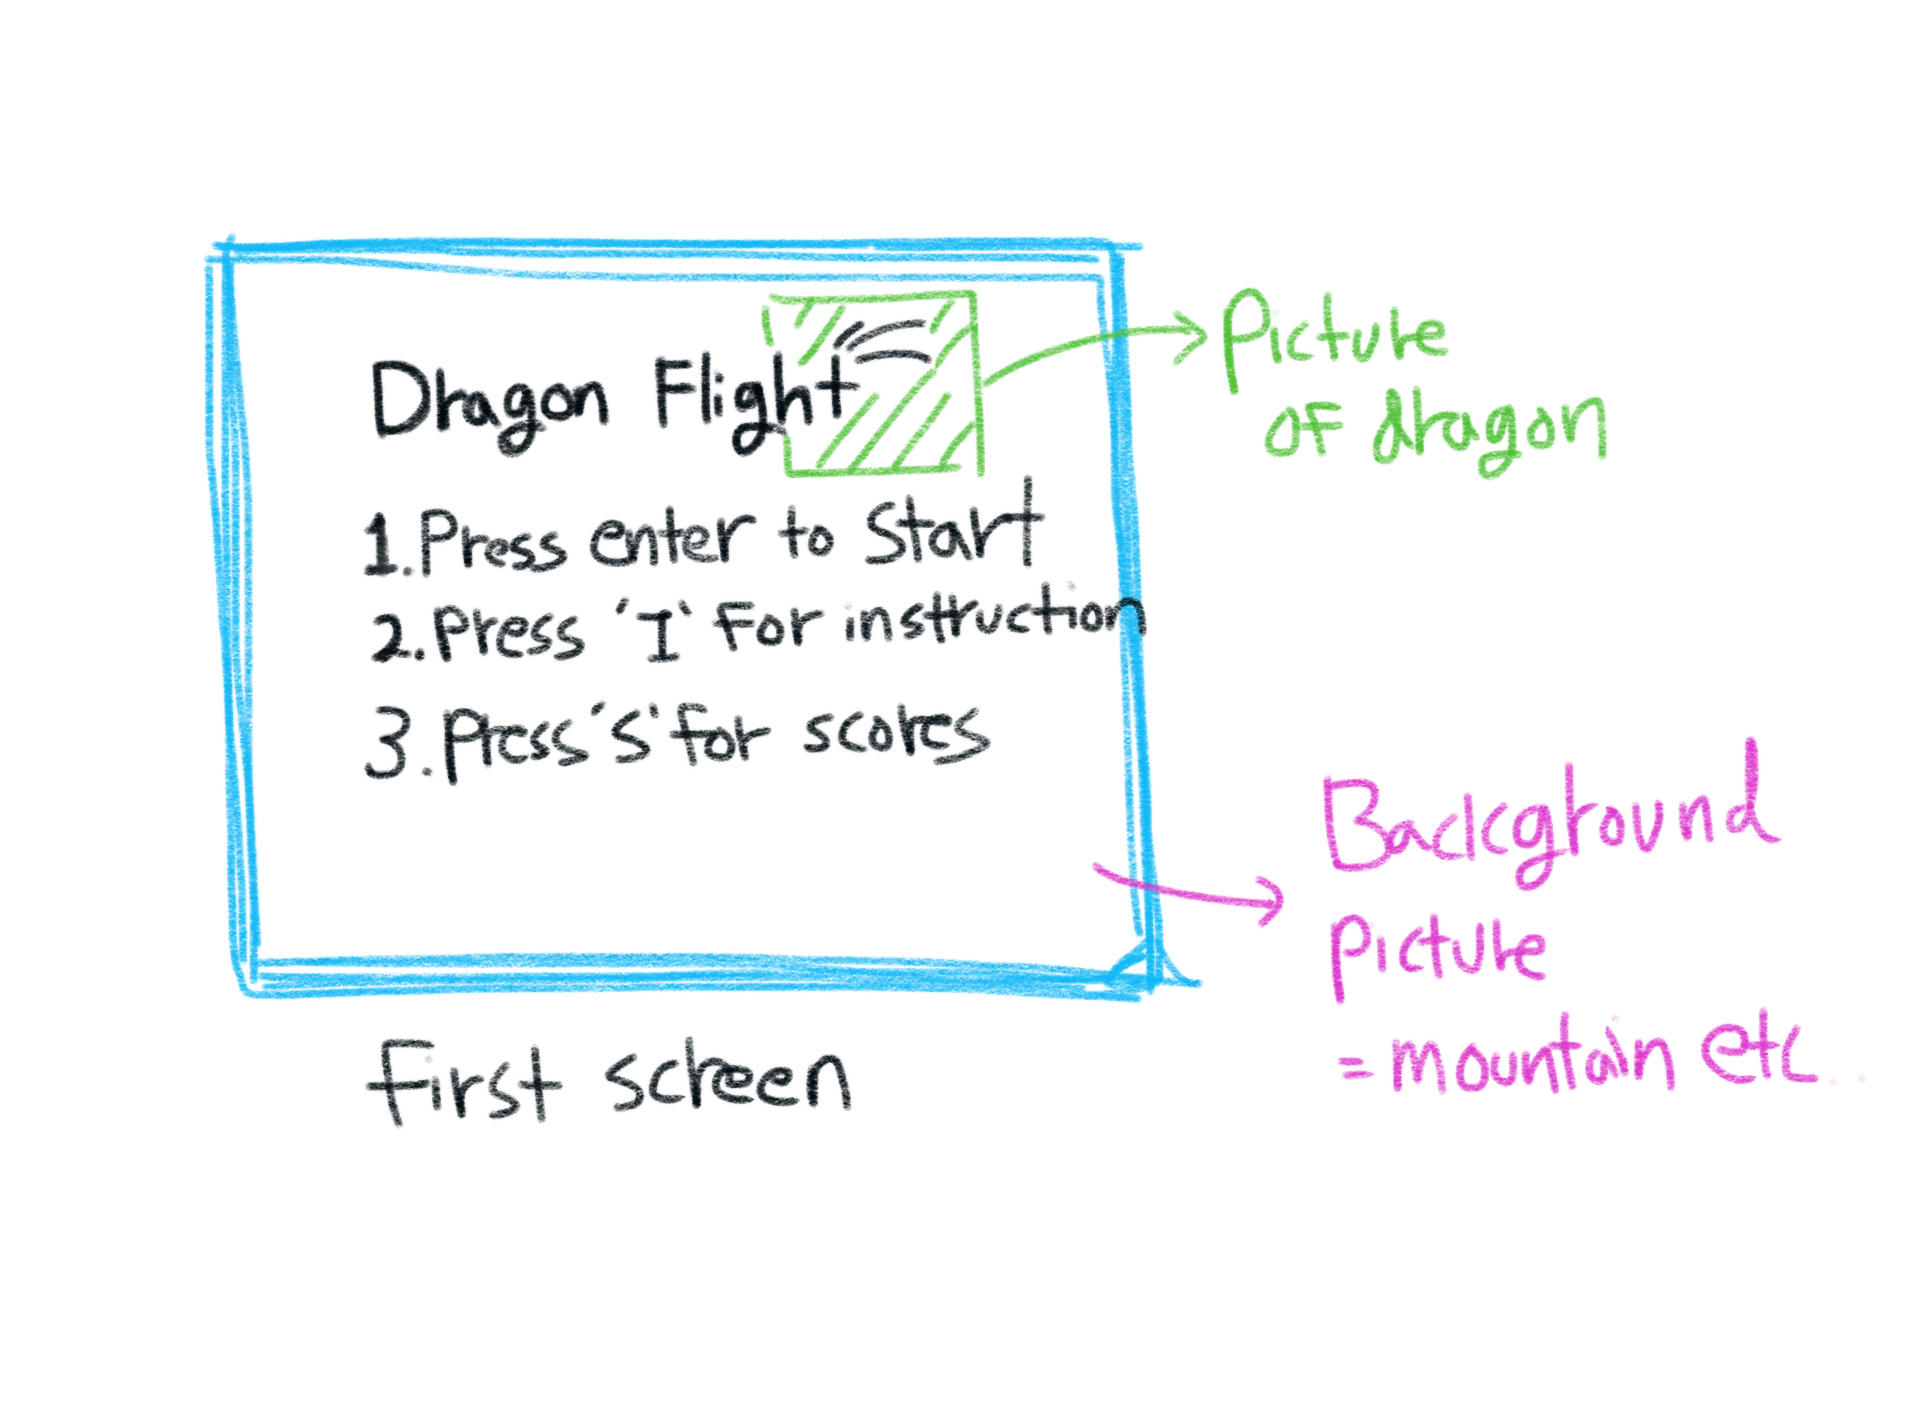 Dragon Flight
1. Press enter to start
2. Press 'I' For instruction
3. Press 's' for scores
First screen
Picture
of dragon
Background
picture
= mountain etc